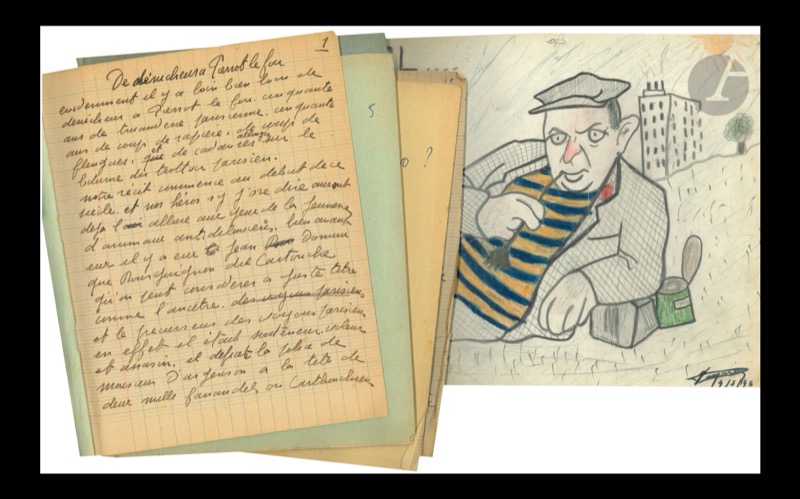 1
De dénicheur a Pierrot le fou
evidemment il y a loin bien loin de
denicheur a Pierrot le fou. cinquante
ans de truanderie parisienne. cinquante
ans de coup de rapière, de coups de
flingues, et de cadavres allongés sur le
bitume du trottoir parisien.
notre récit commence au debut de ce
siecle. et nos héros si j'ose dire auront
deja l'allure aux yeux de la jeunesse
d'animaux antideluviens. bien avant
eux il y a eut le Jean Domini
que Bourguignon dit Cartouche
qu'on peut considerer a juste titre
comme l'ancetre. des voyous parisiens
et le precurseur des voyous parisiens
en effet il etait souteneur. voleur
et assasin. il defiat la police de
monsieur D'argenson a la tete de
deux mille fanandels ou Cartouchiens
5.
?